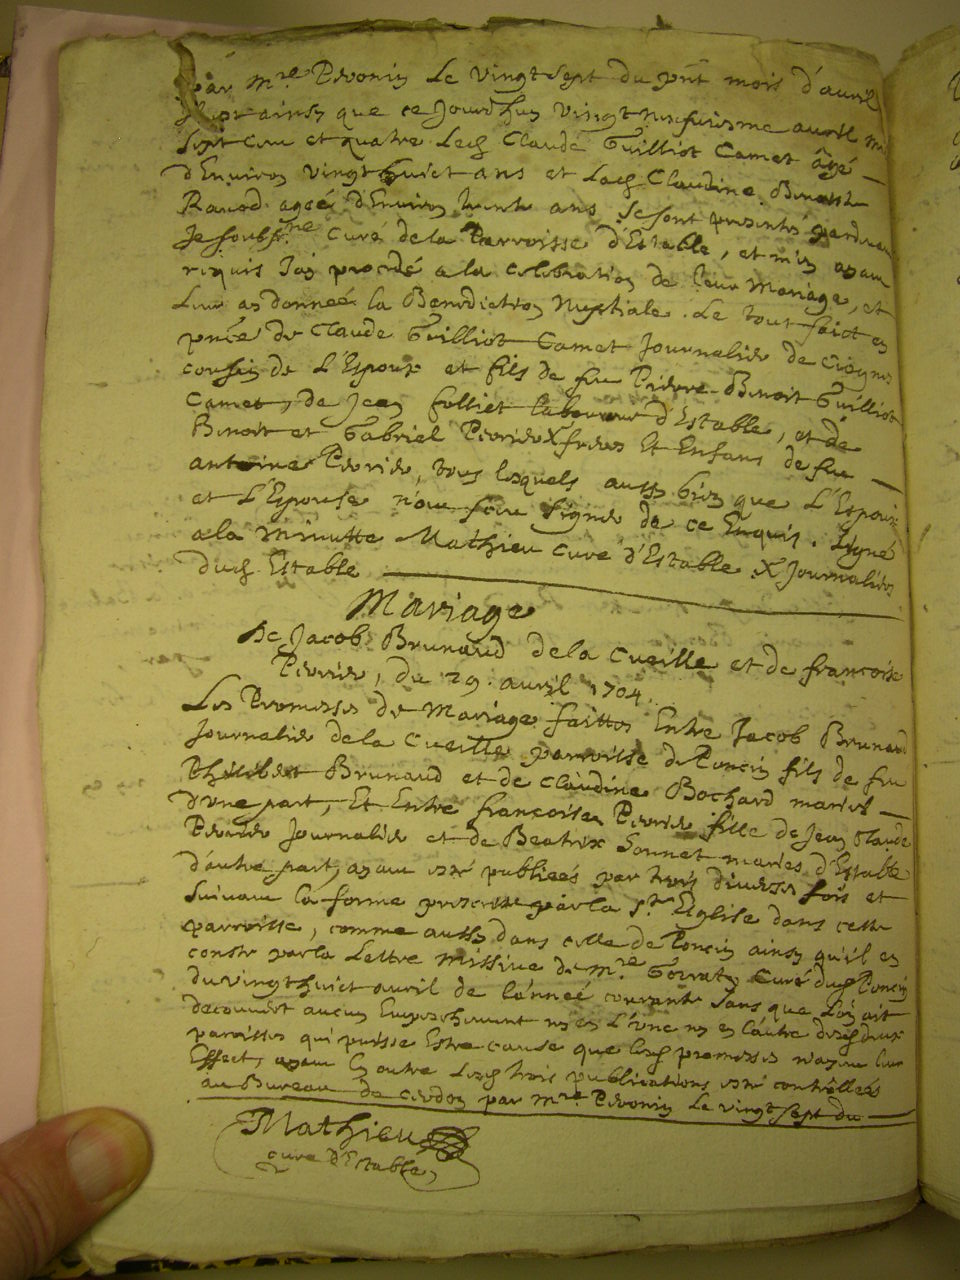 par m.re Pivonin Le vingt sept du pnt mois d'avril
ainsy que ce Jourdhuy vingt neufuiesme auvil mi
sept cens et quatre Led. Claude Guilliot Camet âgé
d'Environ vingt huict ans et Lad. Claudine Benoist
Ravod ageé d'Environ trente ans se sont presentés
Je soubs.ne Curé de la Parroisse d'Estable, et m'en ayant
requis J'ay procedé a la celebration de leur Mariage, et
Leur ay donneé la Benediction Nuptiale. Le tout faict en
pnce de Claude Guilliot Camet Journalier de
cousin de L'Espoux et fils de feu Pierre-Benoit Guilliot
Camet, de Jean folliet laboureur d'Estable, et de
Benoit et Gabriel Perrier X freres Et Enfans de feu
antoine Perrier, tous lesquels aussy bien que L'Espoux
et L'Espouse n'ont sceu signer de ce Enquis. Signé
a la minutte Mathieu curé d'Estable X Journaliers
dud. Estable
Mariage
De Jacob Brunaud de la Cueille et de francoise
Perrier, du 29. avril 1704.
Les Promesses de Mariage faittes Entre Jacob Brunaud
Journalier de la Cueille parroisse de Poncin fils de feu
Philibert Brunaud et de Claudine Bochard mariés
d'une part, Et Entre francoise Perrier fille de Jean Claude
Perrier Journalier et de Beatrix Sonnet mariés d'Estable
d'autre part, ayant esté publieés par trois diverses fois et
suivant la forme prescritte par la S.te Eglise dans cette
parroisse, comme aussy dans celle de Poncin ainsy qu'il en
conste par la Lettre missive de M.re Curé dud. Poncin
du vingt huict avril de l'anneé courante sans que L'on ait
decouvert aucun Empeschement ny en L'une ny en L'autre desd. deux
parroisses qui puisse Estre cause que lesd. promesses n'ayent leur
Effect, ayant En outre Lesd. trois publications esté contrôlleés
au Bureau de Cerdon par m.re Pivonin Le vingt sept du
Mathieu
curé d'Estable